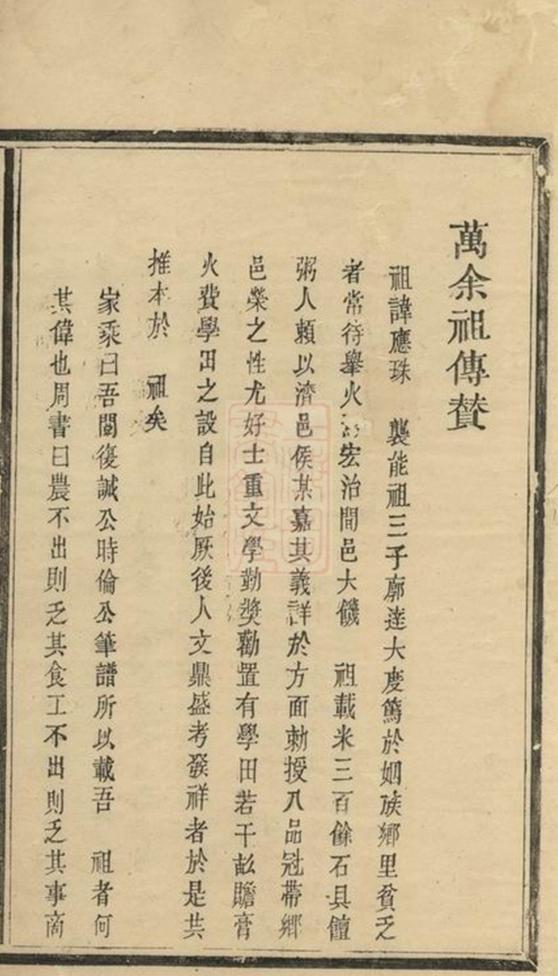 萬余祖傳贊
祖諱應珠 襲能祖三子廓達大度篤於姻族鄉里貧乏
者常待舉火 宏治間邑大饑 祖載米三百餘石具饘
粥人賴以濟邑侯某嘉其義詳於方面勅授八品冠帶鄉
邑榮之性尤好士重文學勤獎勸置有學田若干畝贍膏
火費學田之設自此始厥後人文鼎盛考發祥者於是共
推本於 祖矣
家乘曰吾閱復誠公時倫公筆譜所以載吾 祖者何
其偉也周書曰農不出則乏其食工不出則乏其事商